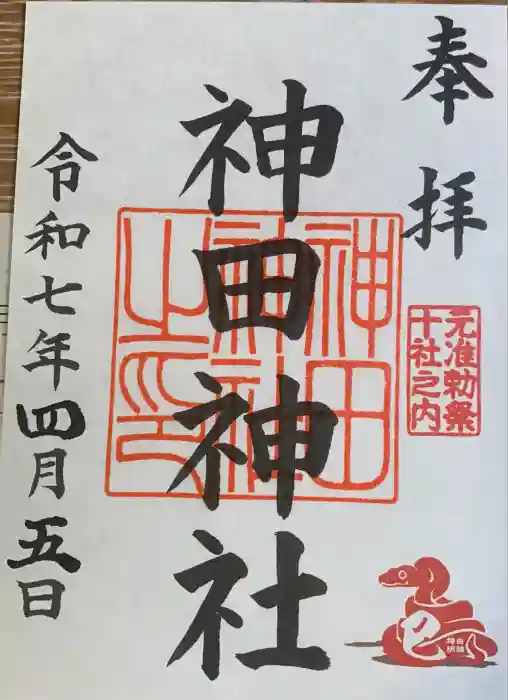 奉拝
元准勅祭
十社之内
神田神社
神田
神社
之印
令和七年四月五日
巳